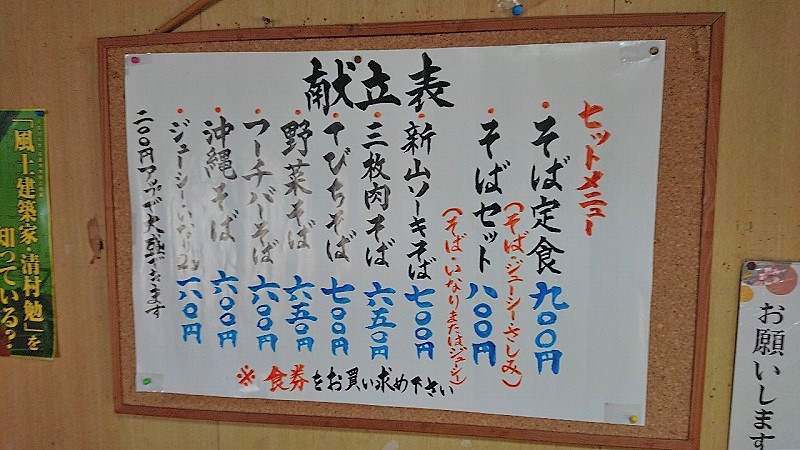 献立表
セットメニュー
・そば定食 九〇〇円
(そば・ジューシー・さしみ)
・そばセット 八〇〇円
(そば・いなりまたはジューシー)
・新山ソーキそば 七〇〇円
・三枚肉そば 六五〇円
・てびちそば 七〇〇円
・野菜そば 六五〇円
・フーチバーそば 六〇〇円
・沖縄そば 六〇〇円
・ジューシー・いなり2ヶ 一六〇円
二〇〇円アップで大盛できます
※食券をお買い求め下さい
「風土建築家・清村勉」を
知っている?
お願いします